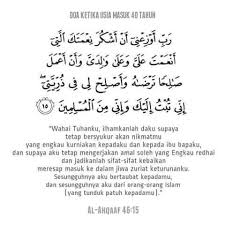 DOA KETIKA USIA MASUK 40 TAHUN
رَبِّ أَوْزِعْنِي أَنْ أَشْكُرَ نِعْمَتَكَ الَّتِي
أَنْعَمْتَ عَلَيَّ وَعَلَى وَالِدَيَّ وَأَنْ أَعْمَلَ
صَالِحًا تَرْضَاهُ وَأَصْلِحْ لِي فِي ذُرِّيَّتِي
إِنِّي تُبْتُ إِلَيْكَ وَإِنِّي مِنَ الْمُسْلِمِينَ ١٥
"Wahai Tuhanku, ilhamkanlah daku supaya
tetap bersyukur akan nikmatmu
yang engkau kurniakan kepadaku dan kepada ibu bapaku,
dan supaya aku tetap mengerjakan amal soleh yang Engkau redhai
dan jadikanlah sifat-sifat kebaikan
meresap masuk ke dalam jiwa zuriat keturunanku.
Sesungguhnya aku bertaubat kepadamu,
dan sesungguhnya aku dari orang-orang islam
(yang tunduk patuh kepadamu)"
AL-AHQAAF 46:15